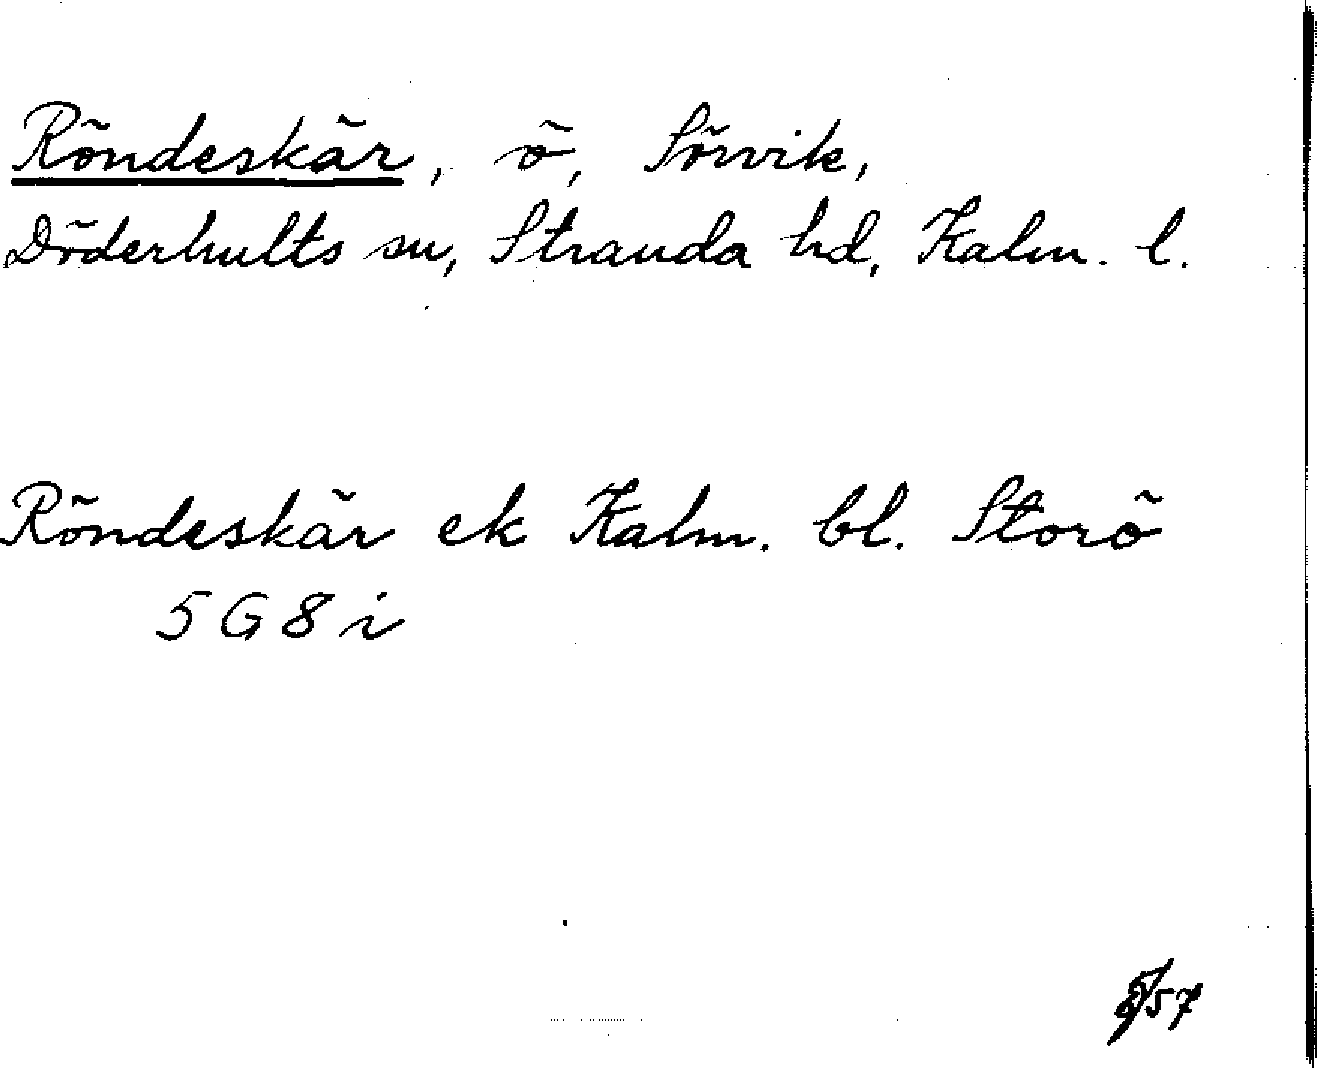 Röndeskär, ö, Sörvik,
Döderhults sn, Stranda hd, Kalm. l.
Röndeskär ek Kalm. bl. Storö
5 G 8 i